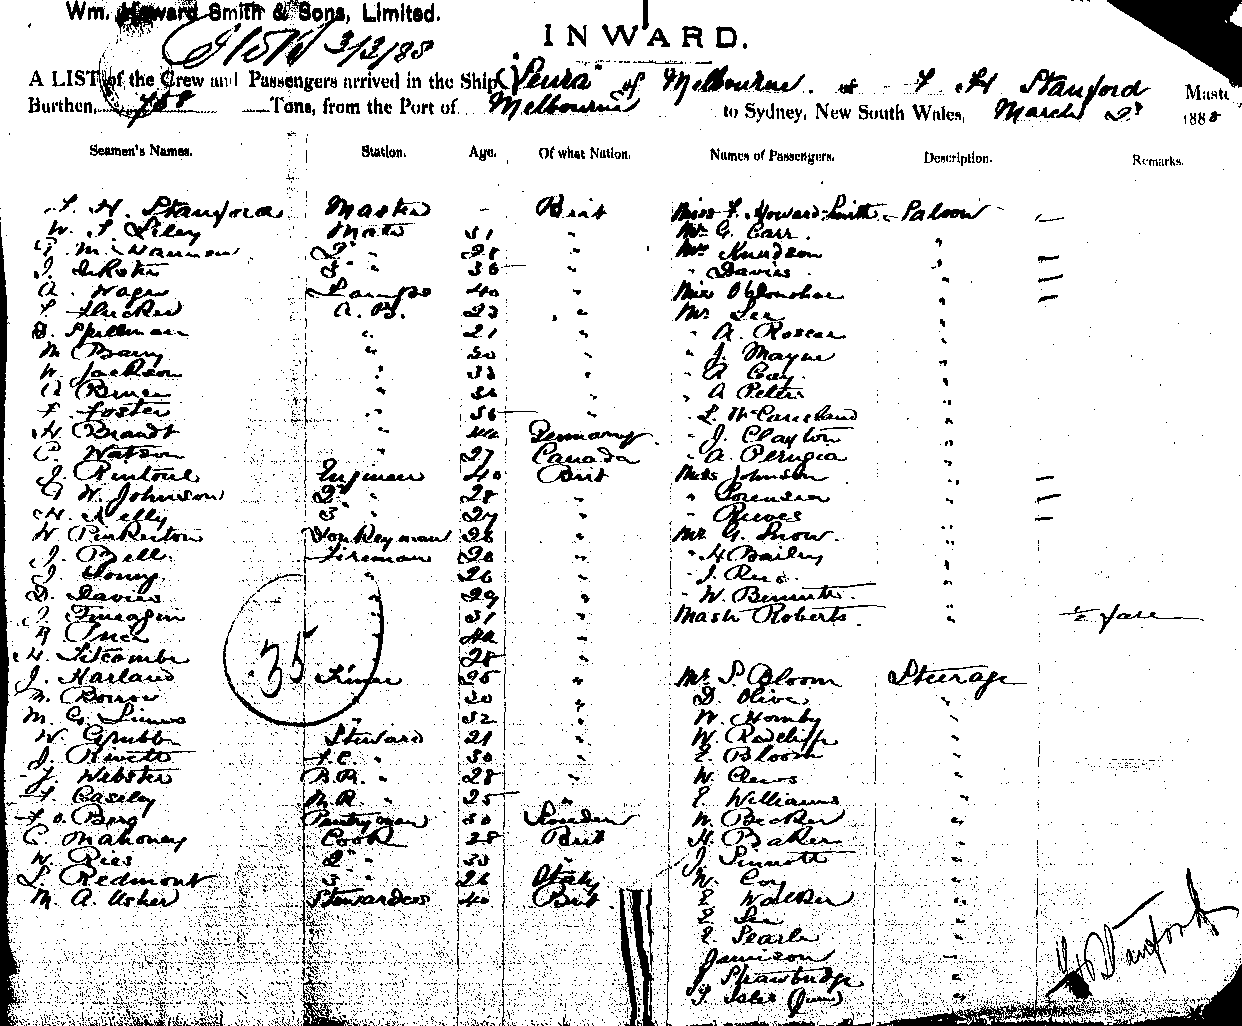 Wm. Howard Smith & Sons, Limited.
INWARD.
3/3/88
A LIST of the Crew and Passengers arrived in the Ship "Leura" of Melbourne. H Stanford Master
Burthen, Tons, from the Port of Melbourne to Sydney, New South Wales, March 2d 1888
Seamen's Names. Station. Age. Of what Nation. Names of Passengers. Description. Remarks.
H. Stanford Master - Brit Miss F. Howard Smith Saloon —
W. S. Liley Mate 31 " Mr G. Carr "
2d " 28 " Mrs Knudson " —
J. 3d " 36 " " Davies " —
A. Wager Lamps 40 " Miss O'Donohue " —
A.B. 23 " Mr Lee "
D. Spillman " 21 " " A. Roscar "
M Barry " 30 " " J. Mayne "
W. Jackson " 33 " " A Gay "
A Bruce " 34 " " A Peters "
F. Foster " 36 " " L. McCausland "
H Brandt " 44 Germany " J. Clayton "
C. Watson " 27 Canada " A. Perugia "
J. Rintoul Engineer 40 Brit Miss Johnson " —
W. Johnson 2d " 28 " " Sorensen " —
H. Kelly 3d " 27 " " Reeves " —
W Pinkerton Donkeyman 28 " Mr G. Snow "
J. Bell Fireman 26 " " H Bailey "
J. " 26 " " J. "
D. Davies " 29 " " W. Bennett "
J. Finnegan " 31 " Mast Roberts " ½ fare
Price " 42 "
H. Titcombe " 28 "
35
J. Harland Trimmer 25 " Mr S Bloom Steerage
30 " D. Olive "
M. G. 32 " W. Hornby "
W. Grubb Steward 21 " W. Radcliffe "
J. Rivett F.C. " 30 " E. Bloom "
Webster B.R. " 28 " W. Clews "
Caseley M.R. " 25 " E Williams "
Berg Pantryman 30 Sweden W. Becker "
C. Mahoney Cook 28 Brit H. Baker "
W. Rees 2d " 33 " J. Sinnott "
L Redmont 3d " 26 Italy W. Coy "
M. A. Usher Stewardess 40 Brit E Walker "
E Lee "
E. Searle "
Jamison "
J Strawbridge "
(Jun) "
Stanford